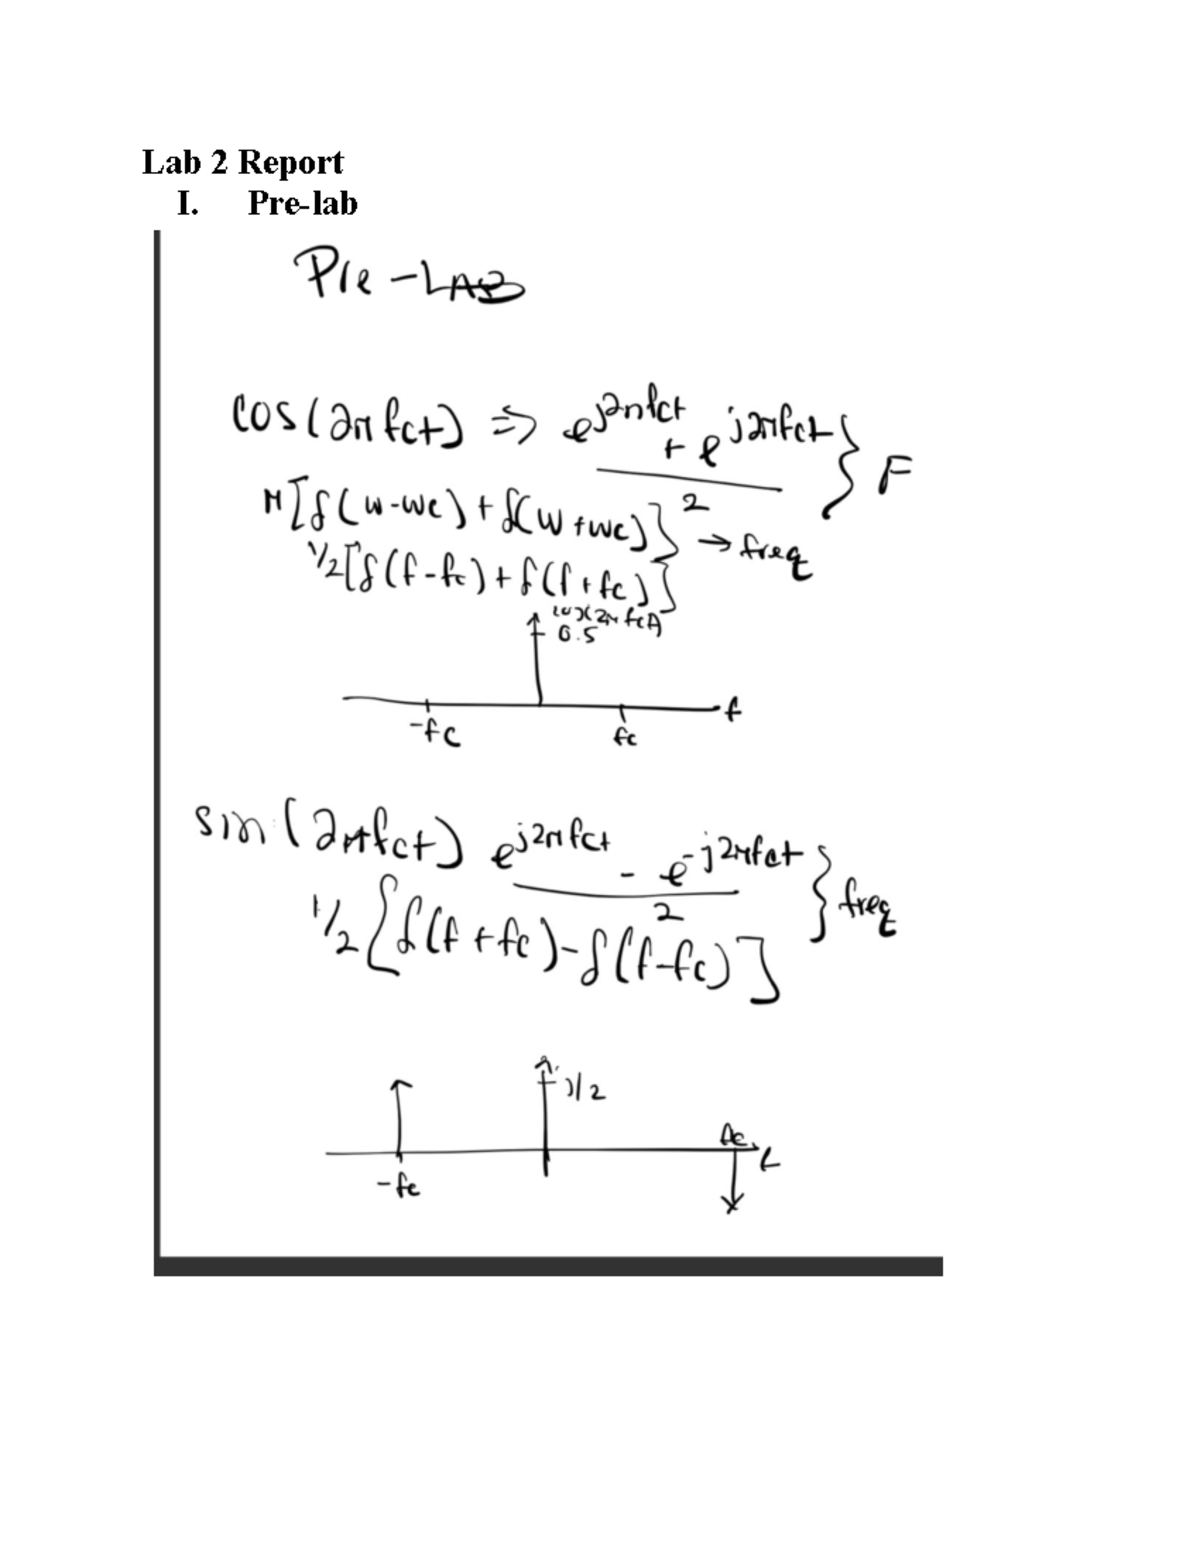 Lab 2 Report
I. Pre-lab
Pre-LAB
cos(2πfct) => e^j2πfct + e^j2πfct / 2 } F
π[δ(w-wc) + δ(w+wc)] } → freq
1/2[δ(f-fc) + δ(f+fc)] }
cos(2πfct)
0.5
-fc fc f
sin(2πfct) e^j2πfct - e^-j2πfct / 2 } freq
1/2[δ(f+fc) - δ(f-fc)]
1/2
fc f
-fc